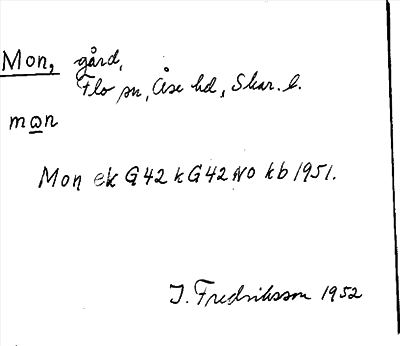 Mon, gård,
Flo sn, Åse hd, Skar. l.
mωn
Mon ek G42 k G42 NO kb 1951.
I. Fredriksson 1952